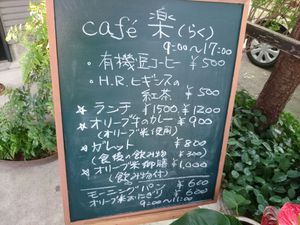 café 楽(らく)
9:00~17:00
・有機豆コーヒー ¥500
・H.R.ヒギンスの
紅茶 ¥500
★ランチ ¥1500. ¥1200
★オリーブ牛のカレー ¥900
(オリーブ米使用)
★ガレット ¥800
(食後の飲み物 ¥300)
★オリーブ米御膳 ¥1,000
(飲み物付)
モーニングパン ¥600
オリーブ米おにぎり ¥600
9:00~11:00